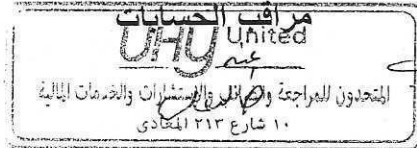 مراقب الحسابات
UHY United
المتحدون للمراجعة والضرائب والإستشارات والخدمات المالية
١٠ شارع ٢١٣ المعادى